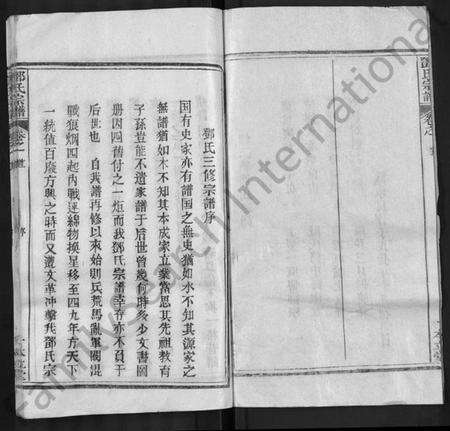 鄧氏三修宗譜序
国有史家亦有譜国之無史猶如水不知其源家之
無譜猶如木不知其本成家立業當思其先祖教育
子孫豈能不遺家譜于后世曾幾何時多少文書圖
册因四舊付之一炬而我鄧氏宗譜幸存亦不負于
后世也 自我譜再修以來始則兵荒馬亂軍閥混
戰狼烟四起內戰連綿物换星移至四九年方天下
一統值百廢方興之時而又遭文革冲擊我鄧氏宗
鄧氏宗譜
卷之一首
序
鄧氏宗譜
卷之首
FamilySearch International